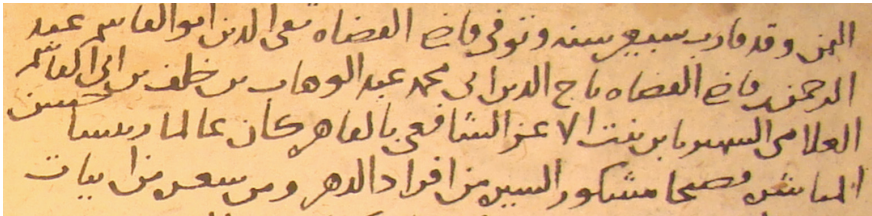 اليمن وقد قارب سبعين سنه وتوفى قاضى القضاه تقى الدين ابو القاسم عبد
الرحمن بن قاضى القضاه تاج الدين ابى محمد عبد الوهاب بن خلف بن ابى القاسم
العلامى الشهير بابن بنت الاعز الشافعى بالقاهره كان عالما رييسا حسن
فصيحا مشكور السيره من افراد الدهر ومن شعره من ابيات